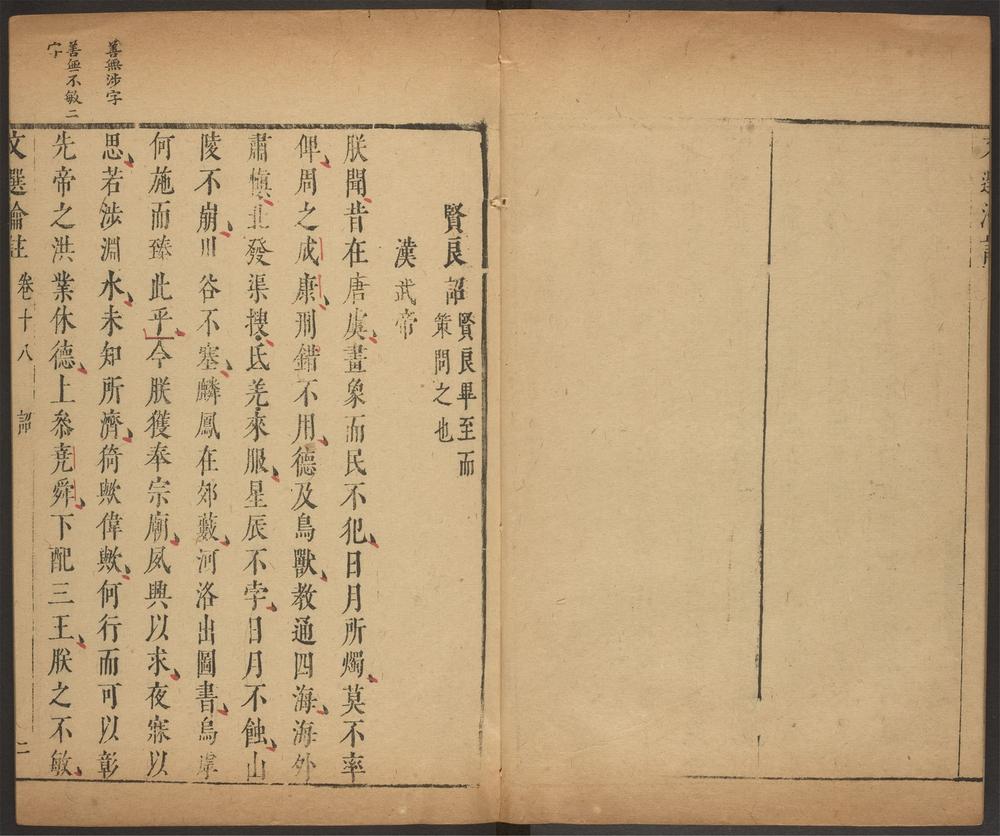 賢良詔 賢良畢至而
策問之也
漢武帝
朕聞昔在唐虞畫象而民不犯日月所燭莫不率
俾周之成康刑錯不用德及鳥獸教通四海海外
肅慎北發渠搜氐羌來服星辰不孛日月不蝕山
陵不崩川谷不塞麟鳳在郊藪河洛出圖書嗚虖
何施而臻此乎今朕獲奉宗廟夙興以求夜寐以
思若涉淵水未知所濟猗歟偉歟何行而可以彰
先帝之洪業休德上參堯舜下配三王朕之不敏
文選瀹註 卷十八 詔 二
善無涉字
善無不敏二
字